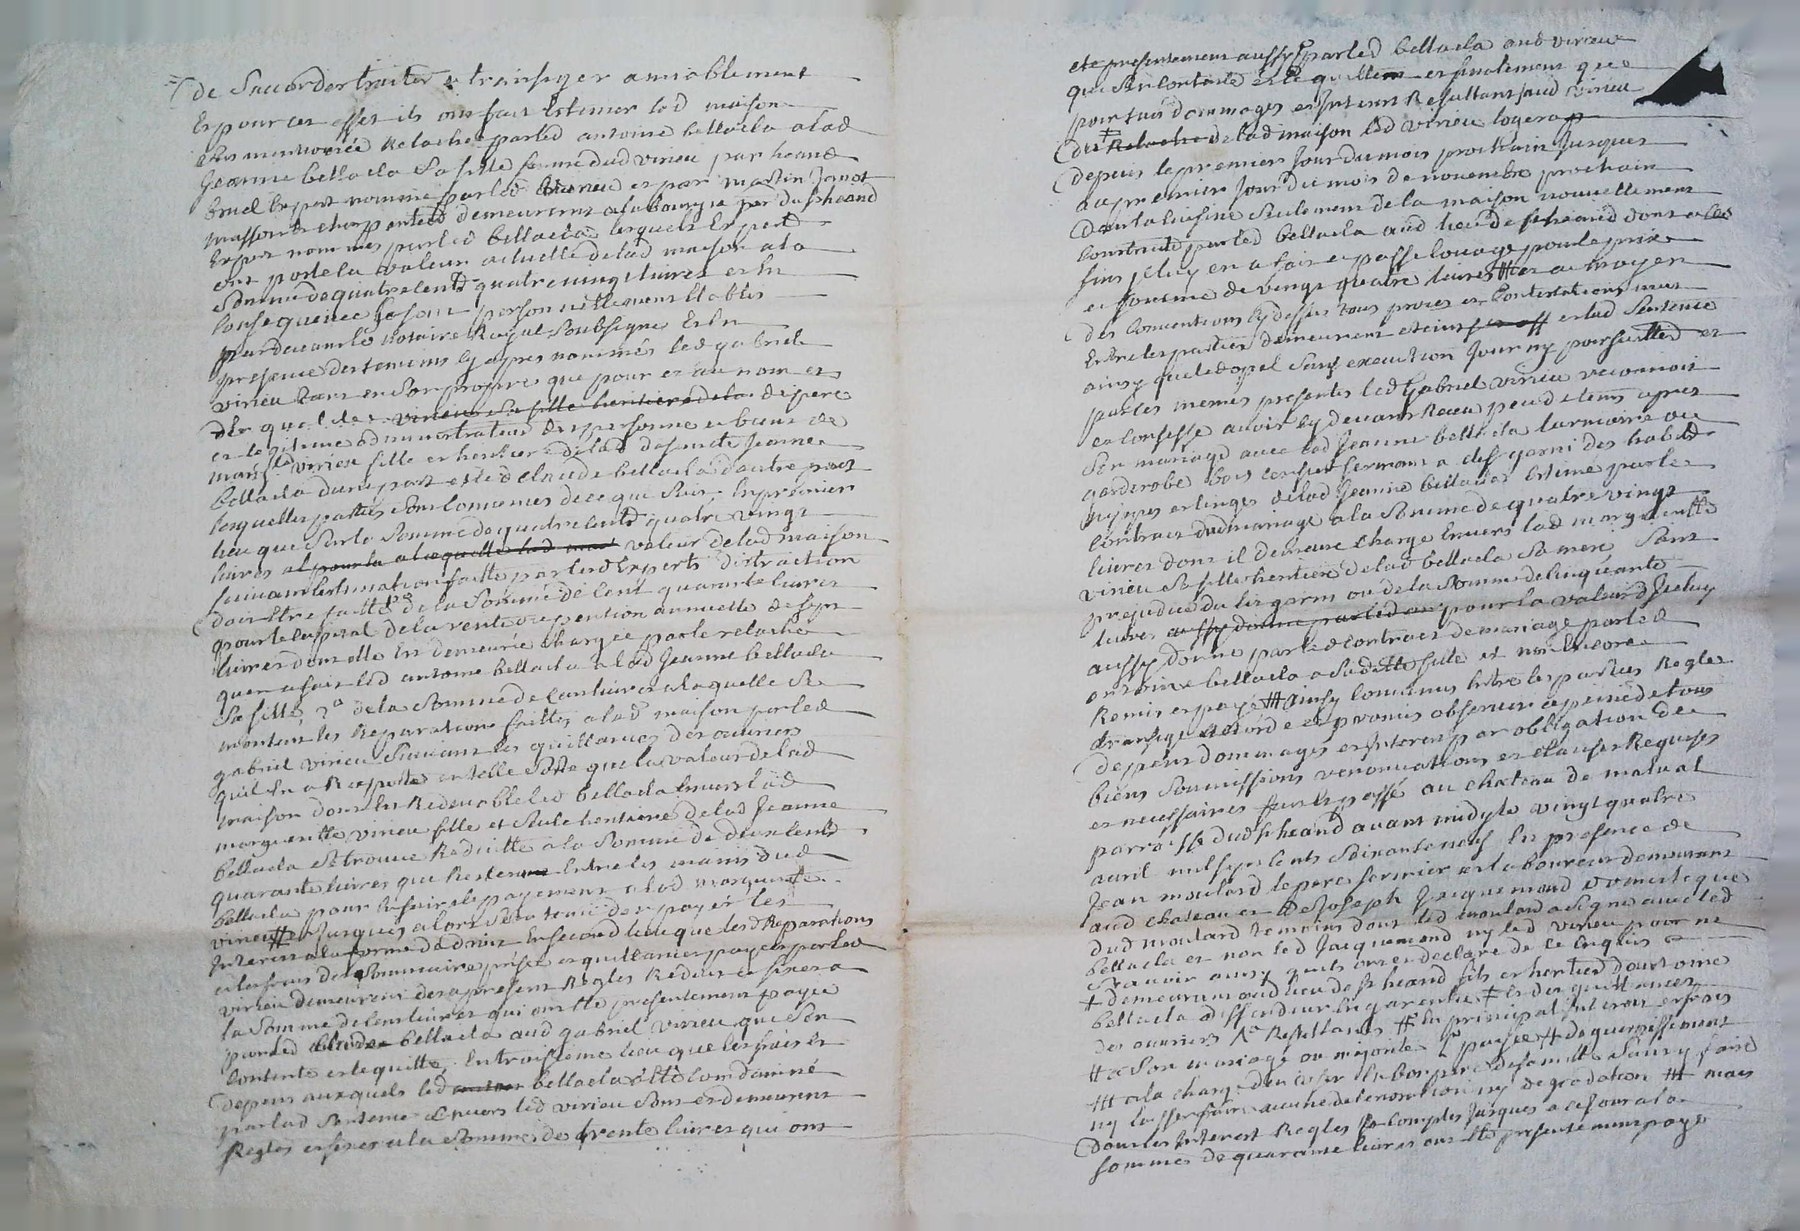 de saccorder traiter & transiger amiablement
Et pour cet effet ils ont fait Estimer lad maison
Relachée parled antoine bellaila alad
Jeanne bellaila sa fille femme dud virieu par heand
bruel Expert nommé parled virieu et par martin Janot
masson & charpentier demeurent
Expert nommés parled bellaila lesquels Experts
ont porté la valeur actuelle delad maison a la
somme de quatre cents quatre vingt livres et En
consequence se sont personnellement Etablis
pardevant le notaire Royal soubsigné Et En
presence des temoins cy apres nommés led gabriel
virieu tant en son propre que pour et au nom et
der qual de virieu sa fille heritiere de la de pere
et legitime administrateur de personne et biens de
marg.te virieu fille et heritiere delad defunte Jeanne
bellaila dune part et led claude bellaila dautre part
lesquelles parties sont convenues de ce que suit En premier
lieu que sur la somme de quatre cents quatre vingt
livres a laquelle lad valeur delad maison
suivant lestimation faitte parlesd Experts distraction
doit Etre faitte 1° de la somme de cent quarante livres
pour le capital de la rente ou pention annuelle de sept
livres dont elle Est demeurée chargée par le relaché
quen a fait led antoine bellaila alad Jeanne bellaila
sa fille, 2° de la somme de cent livres a laquelle se
montent les Reparations faittes alad maison parled
gabriel virieu suivant les quittances des ouvriers
quil En a Raporté en telle sorte que la valeur delad
maison dont Est Redevable led bellaila Envers lad
margueritte virieu fille et seule heritiere delad Jeanne
bellaila se trouve Reduitte a la somme de deux cents
quarante livres que Restent Entre les mains dud
bellaila pour En faire le payement alad marguerite
virieu # et Jusques alors sera tenu de payer les
Interets a la forme de droit En second lieu que lesd Reparations
et les frais de sommaire prise et quittances payés parled
virieu demeurent des a present Regles Reduits et fixes a
la somme de cent livres qui ont Eté presentement payée
parled claude bellaila aud gabriel virieu que sen
contente et le quitte, En troisieme lieu que les frais et
depens auxquels led bellaila a Eté condamné
parlad sentence Envers led virieu sont et demeurent
Regles et fixes a la somme de trente livres qui ont
ete presentement aussy payé parled bellaila aud virieu
que sen contente et le quitte et finalement que
pour tous dommages et Interets Resultant aud virieu
du # Relaché delad maison led virieu logera
depuis le premier Jour du mois prochain Jusques
au premier Jour du mois de novembre prochain
dans la cuisine seulement de la maison nouvellement
construite parled bellaila aud lieu de st heand dont a ces
fins Icluy en a fait et passé louage pour le prix
et somme de vingt quatre livres # et au moyen
des conventions cy dessus tous proces et contestations mus
Entre les parties demeurent eteints et lad sentence
ainsy que led apel sans execution Jour ny poursuittes et
par les memes presentes led Gabriel virieu reconnoit
et confesse avoir cy devant Receu peu de tems apres
son mariage avec lad Jeanne bellaila larmoire ou
garderobe bois fermant a clef garni des habits
Juppes et linges delad Jeanne bellaila Estimé par le
contract dud mariage a la somme de quatre vingt
livres dont il demeure chargé Envers lad marguerite
virieu sa fille heritiere delad bellaila sa mere sans
prejudice du lit garni ou de la somme de cinquante
livres aussy donné parled pour la valeur dIceluy
aussy donné parled contract de mariage parled
antoine bellaila a saditte fille et non Encore
Remis et payé # ainsy convenus Entre les parties Regle
transigé accordé et promis observer a peine de tous
depens dommages et Interets par obligation de
biens soumissions renonciations et clauses Requises
et necessaires fait et passé au chateau de malval
parroisse dud st heand avant midy le vingt quatre
avril mil sept cents soixante neuf En presence de
Jean moulard le pere fermier et laboureur demeurant
aud chateau et de Joseph Jacquemond domestique
dud moulard temoins dont led moulard a signé avec led
bellaila et non led Jacquemond ny led virieu pour ne
scavoir ainsy quils ont declaré de ce Enquis
# demeurant aud lieu de st heand fils et heritier dantoine
bellaila deffendeur En garentie # Et des quittances
des ouvriers # Resultants # En principal Interets et frais
# a son mariage ou majorité passée # deguerpissement
# a la charge den user En bon pere de famille sans y faire
ny laisser faire aucune deterioration ny degradation # mais
dont les Interets Regles Et comptes Jusques a ce Jour a la
somme de quarante livres ont Eté presentement payé